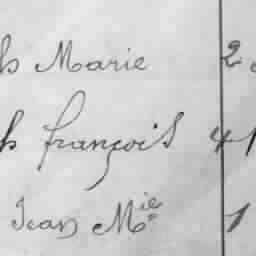 h Marie 2
h françois 41
Jean M^ie 1